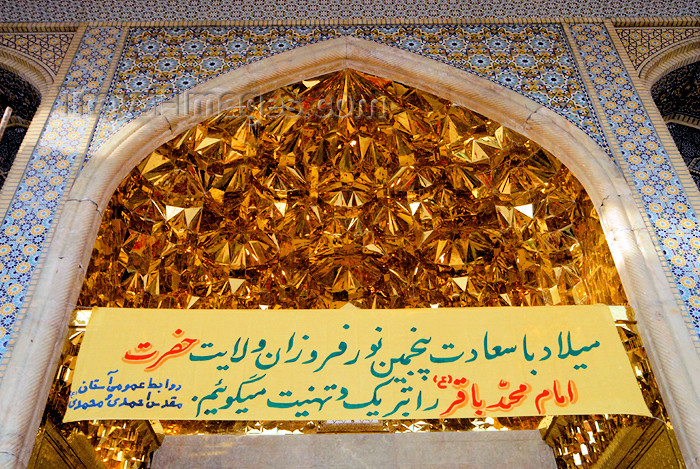 Travel-Images.com
میلاد با سعادت پنجمین نور فروزان ولایت حضرت
امام محمد باقر (ع) را تبریک و تهنیت میگوئیم.
روابط عمومی آستان
مقدس احمدی و محمدی